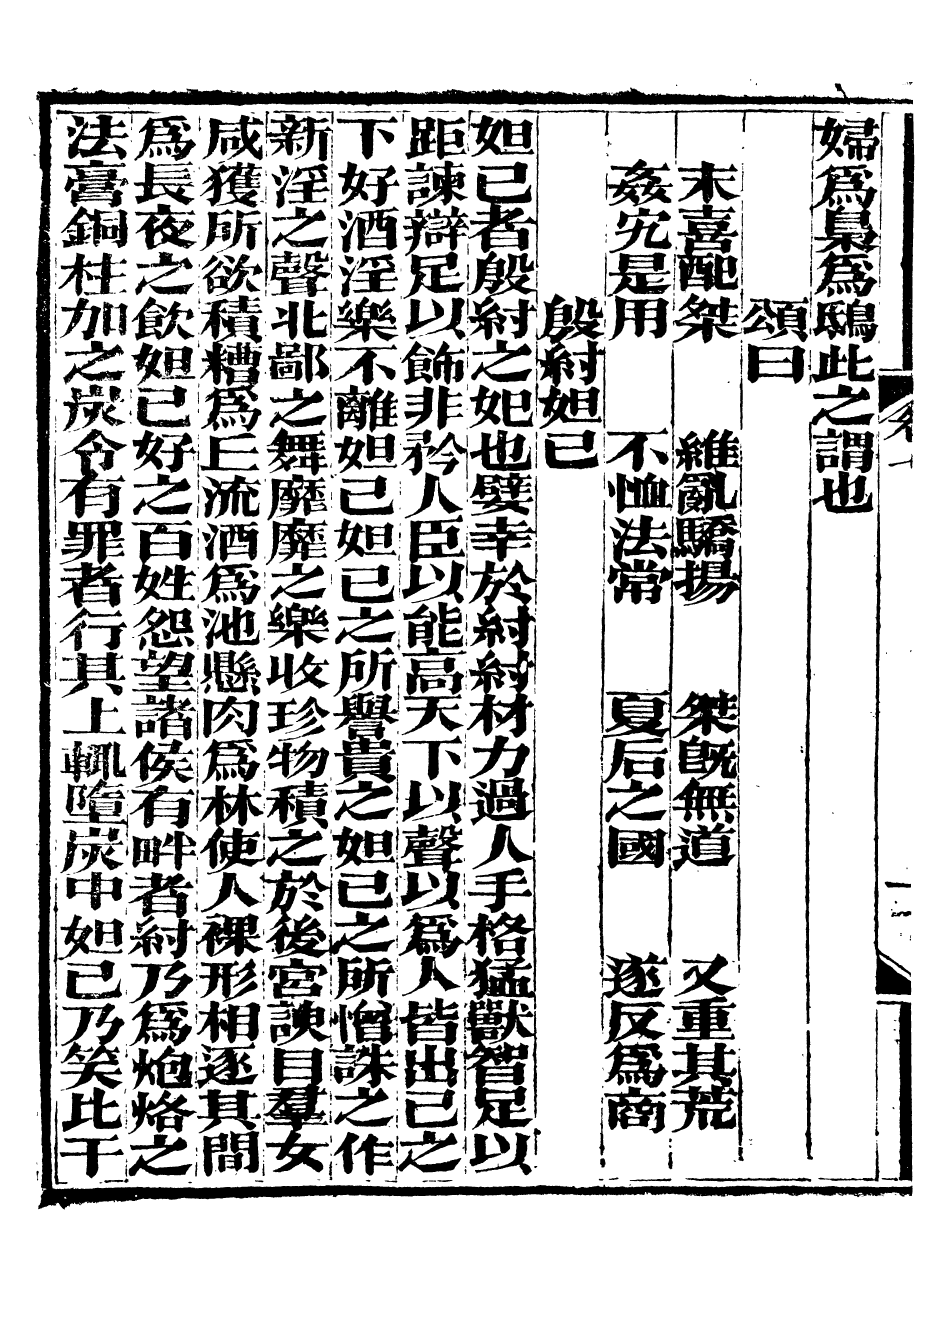 婦爲梟爲鴟此之謂也
頌曰
末喜配桀　維亂驕揚　桀旣無道　又重其荒
姦宄是用　不恤法常　夏后之國　遂反爲商
殷紂妲己
妲己者殷紂之妃也嬖幸於紂紂材力過人手格猛獸智足以
距諫辯足以飾非矜人臣以能高天下以聲以爲人皆出己之
下好酒淫樂不離妲己妲己之所譽貴之妲己之所憎誅之作
新淫之聲北鄙之舞靡靡之樂收珍物積之於後宮諛目羣女
咸獲所欲積糟爲丘流酒爲池懸肉爲林使人裸形相逐其間
爲長夜之飲妲己好之百姓怨望諸侯有畔者紂乃爲炮烙之
法膏銅柱加之炭令有罪者行其上輒墮炭中妲己乃笑比干